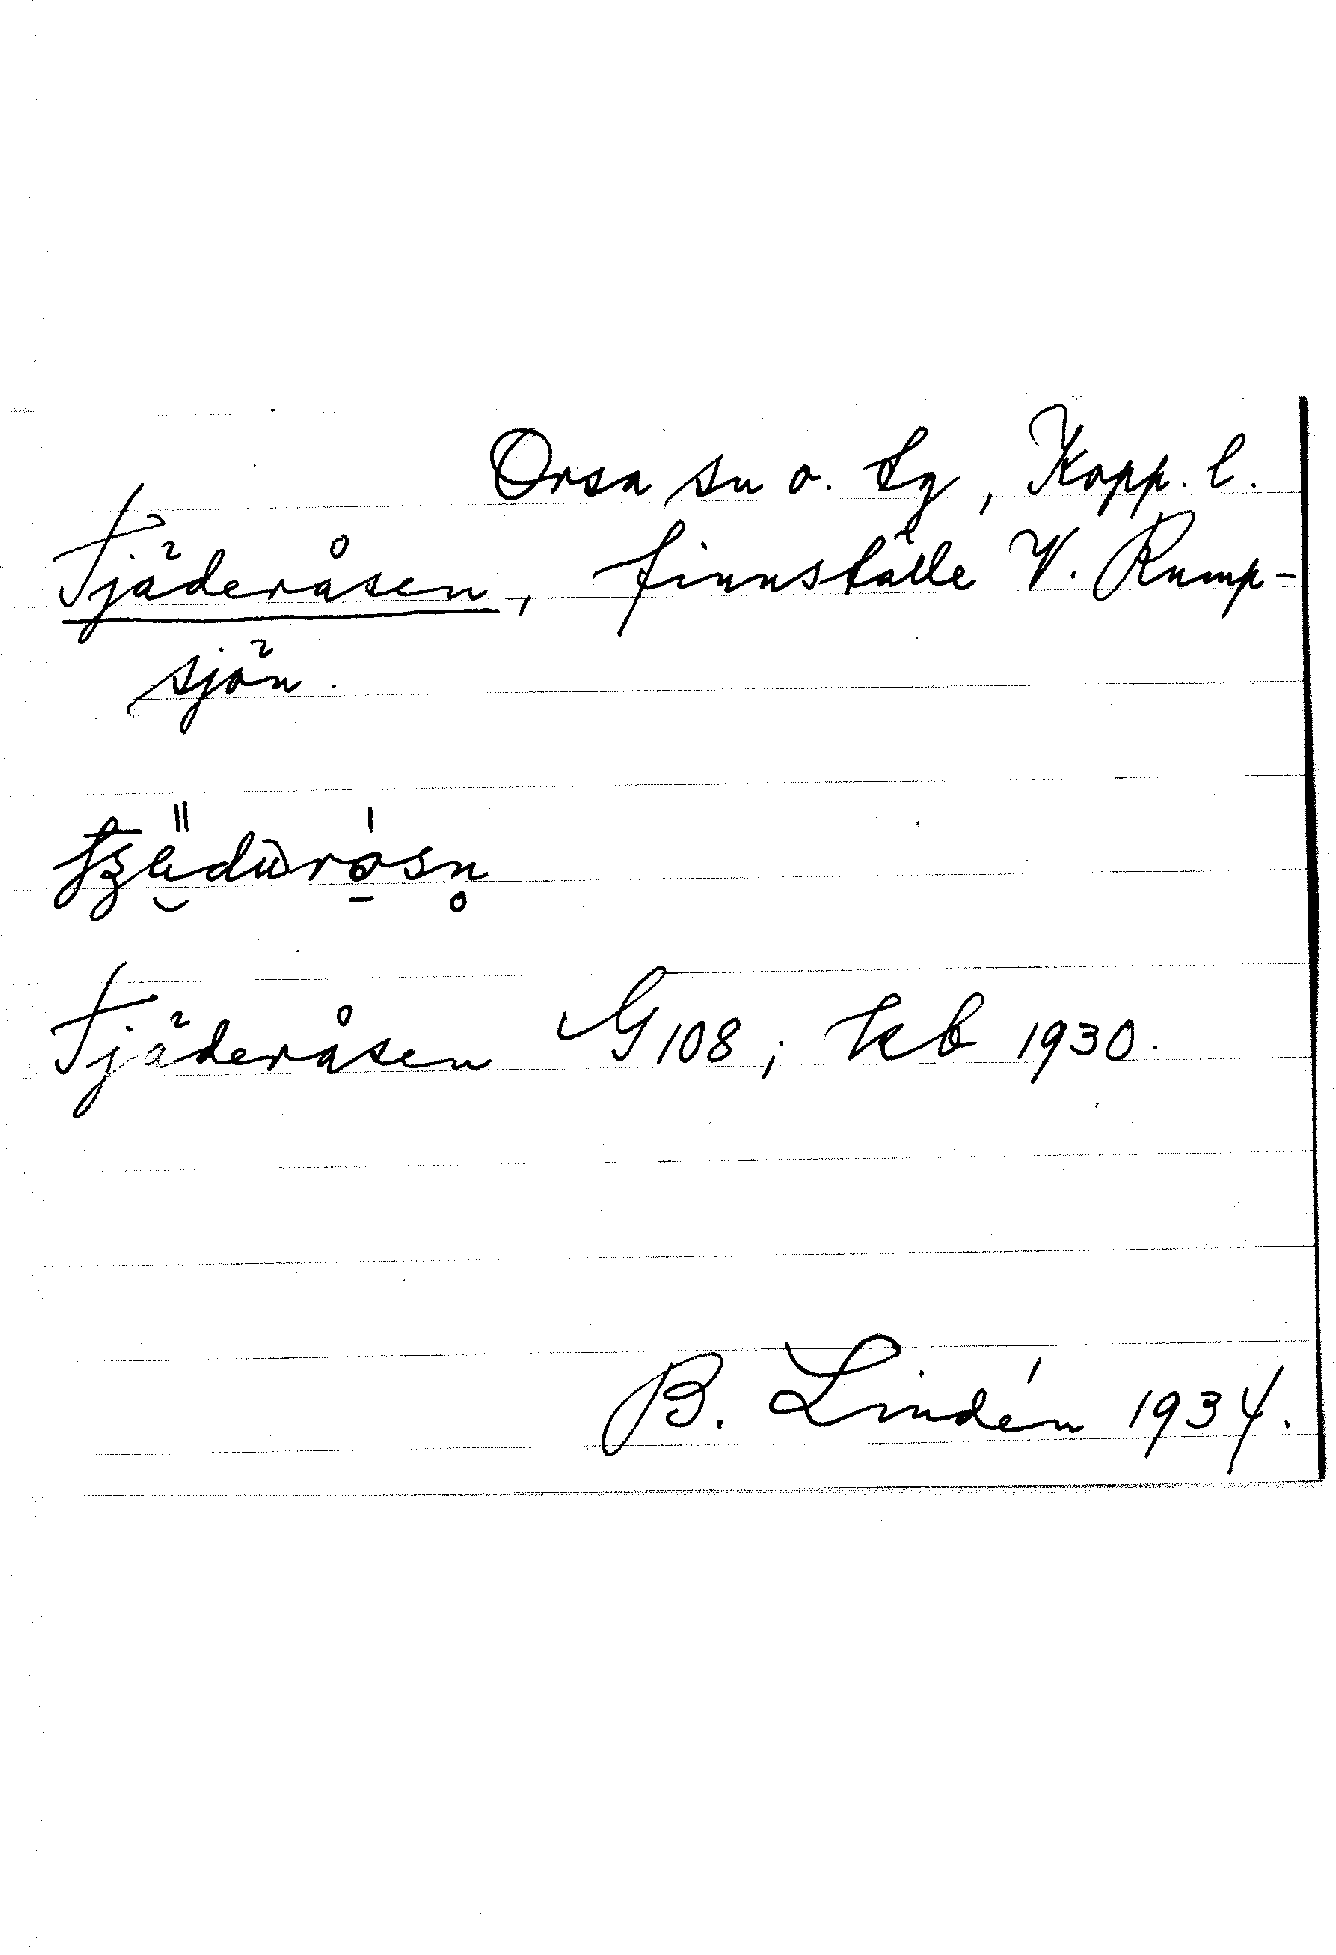 Orsa sn o. tg, Kopp. l.
Tjäderåsen, finnställe V. Rump-
sjön.
Tjäderåsen G108; kb 1930.
B. Lindén 1934.